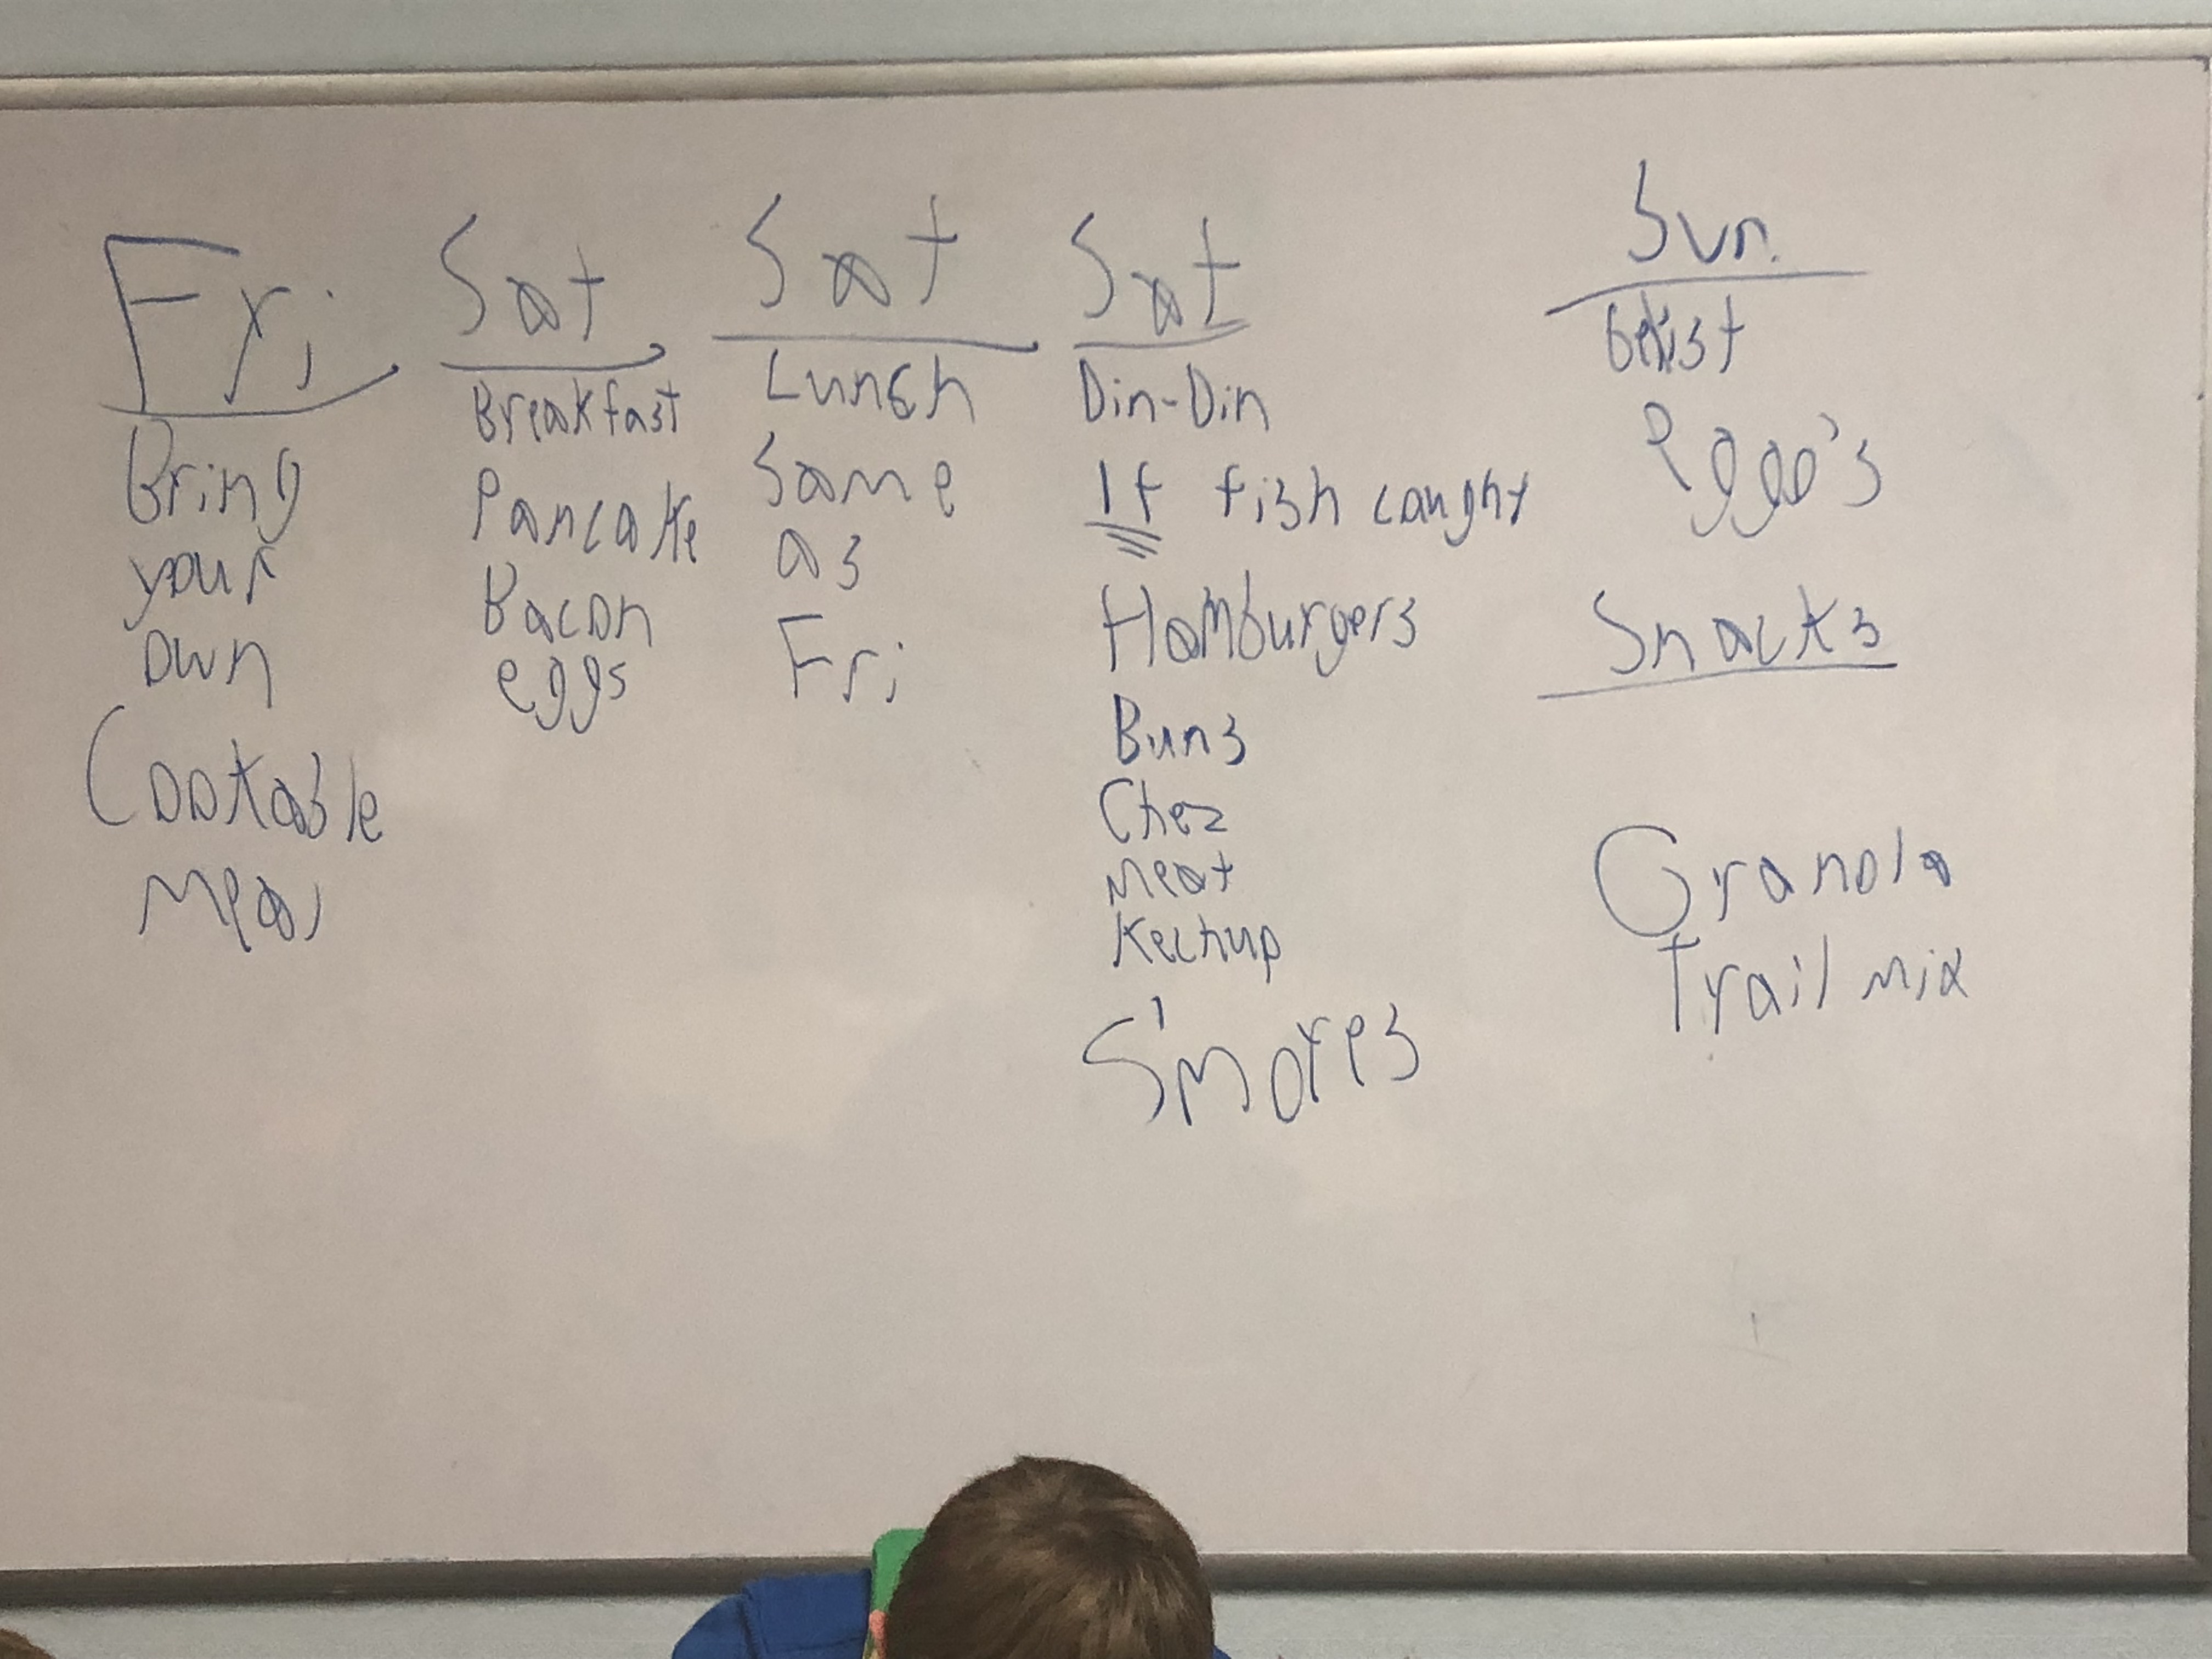 Fri
Bring
your
own
Cookable
meal
Sat
Breakfast
Pancake
Bacon
eggs
Sat
Lunch
Same
as
Fri
Sat
Din-Din
If fish caught
Hamburgers
Buns
Chez
meat
Kechup
S'mores
Sun.
eggo's
Snacks
Granola
Trail mix